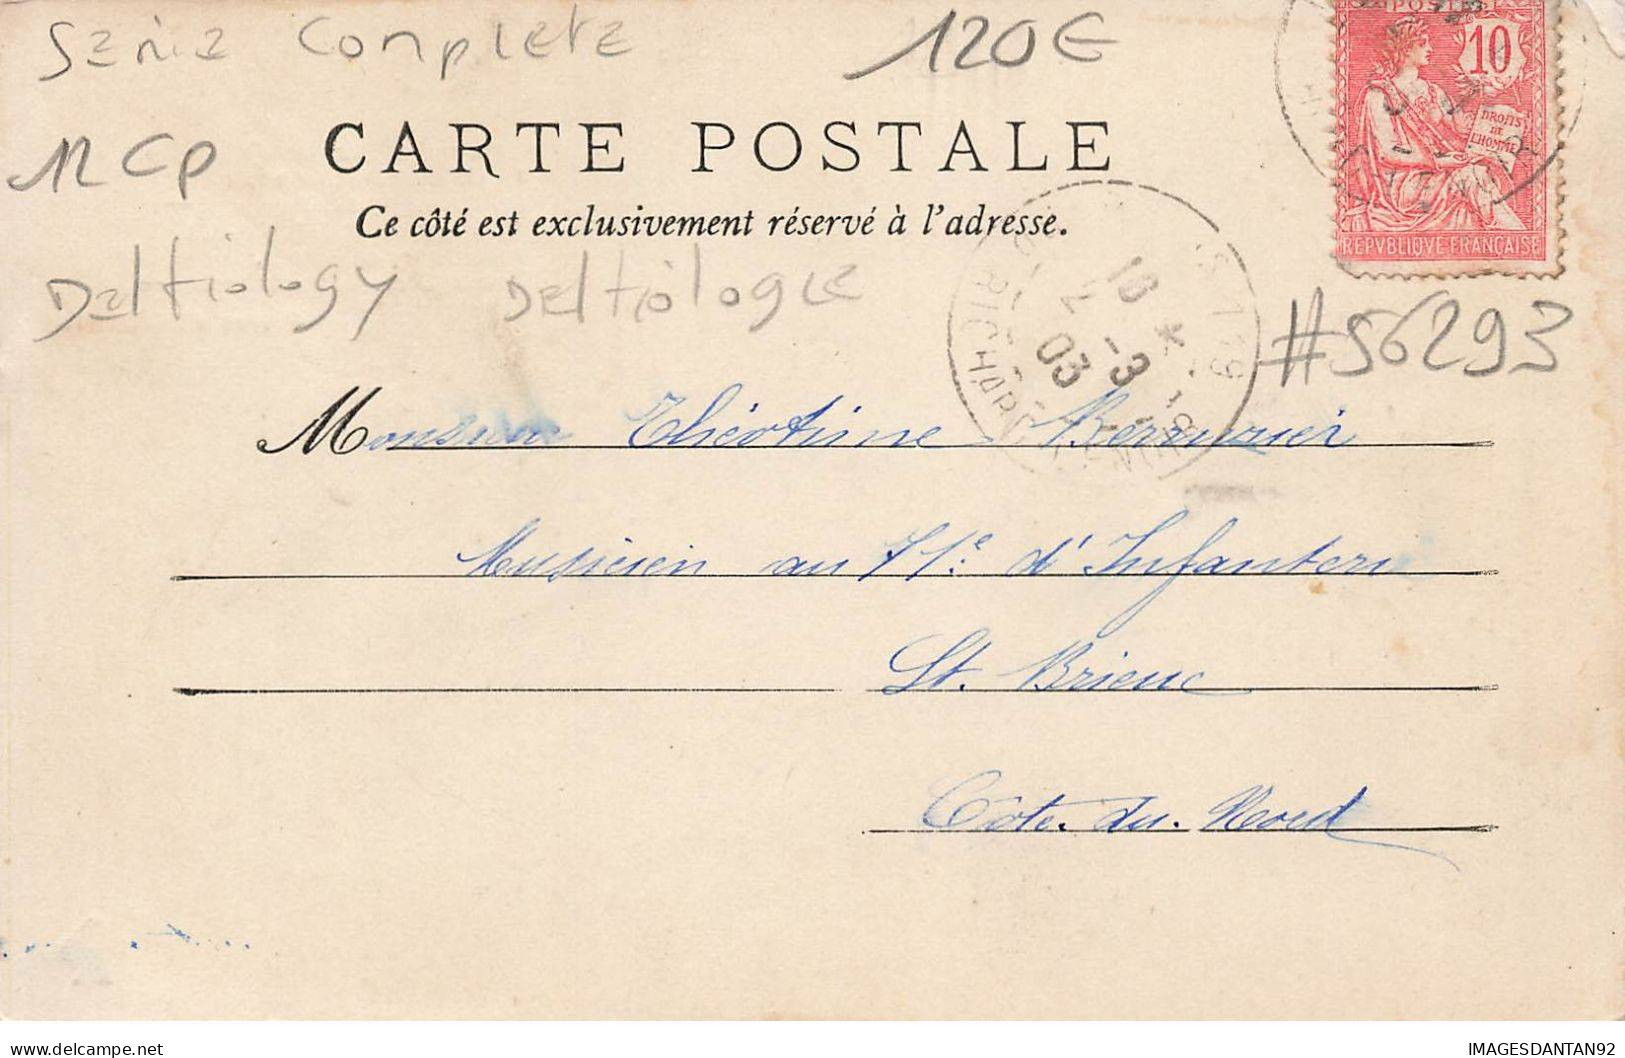 Serie Complete 120€
12 Cp
CARTE POSTALE
Ce côté est exclusivement réservé à l'adresse.
Deltiology Deltiologie
#56293
POSTES
10
DROITS
DE
L'HOMME
REPVBLIQVE FRANÇAISE
10 *
2 -3
03
Monsieur Théotime Berruzier
Musicien au 71e d'Infanterie
St. Brieuc
Côte. du. Nord
IMAGESDANTAN92